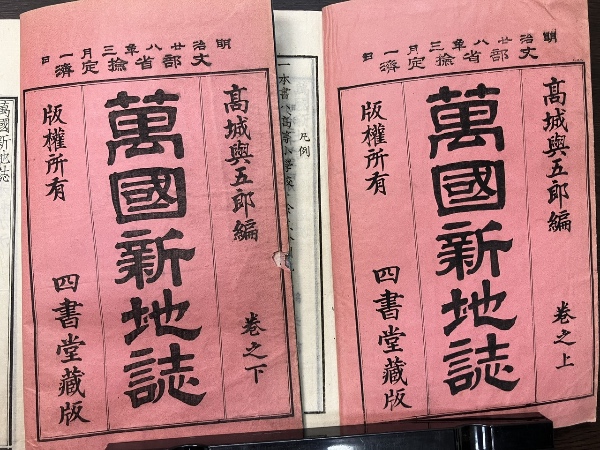 明治廿八年三月一日
文部省撿定濟
高城與五郎編
卷之上
萬國新地誌
版權所有
四書堂藏版
凡例
一本書ハ高等小學校
明治廿八年三月一日
文部省撿定濟
高城與五郎編
卷之下
萬國新地誌
版權所有
四書堂藏版
萬國新地誌